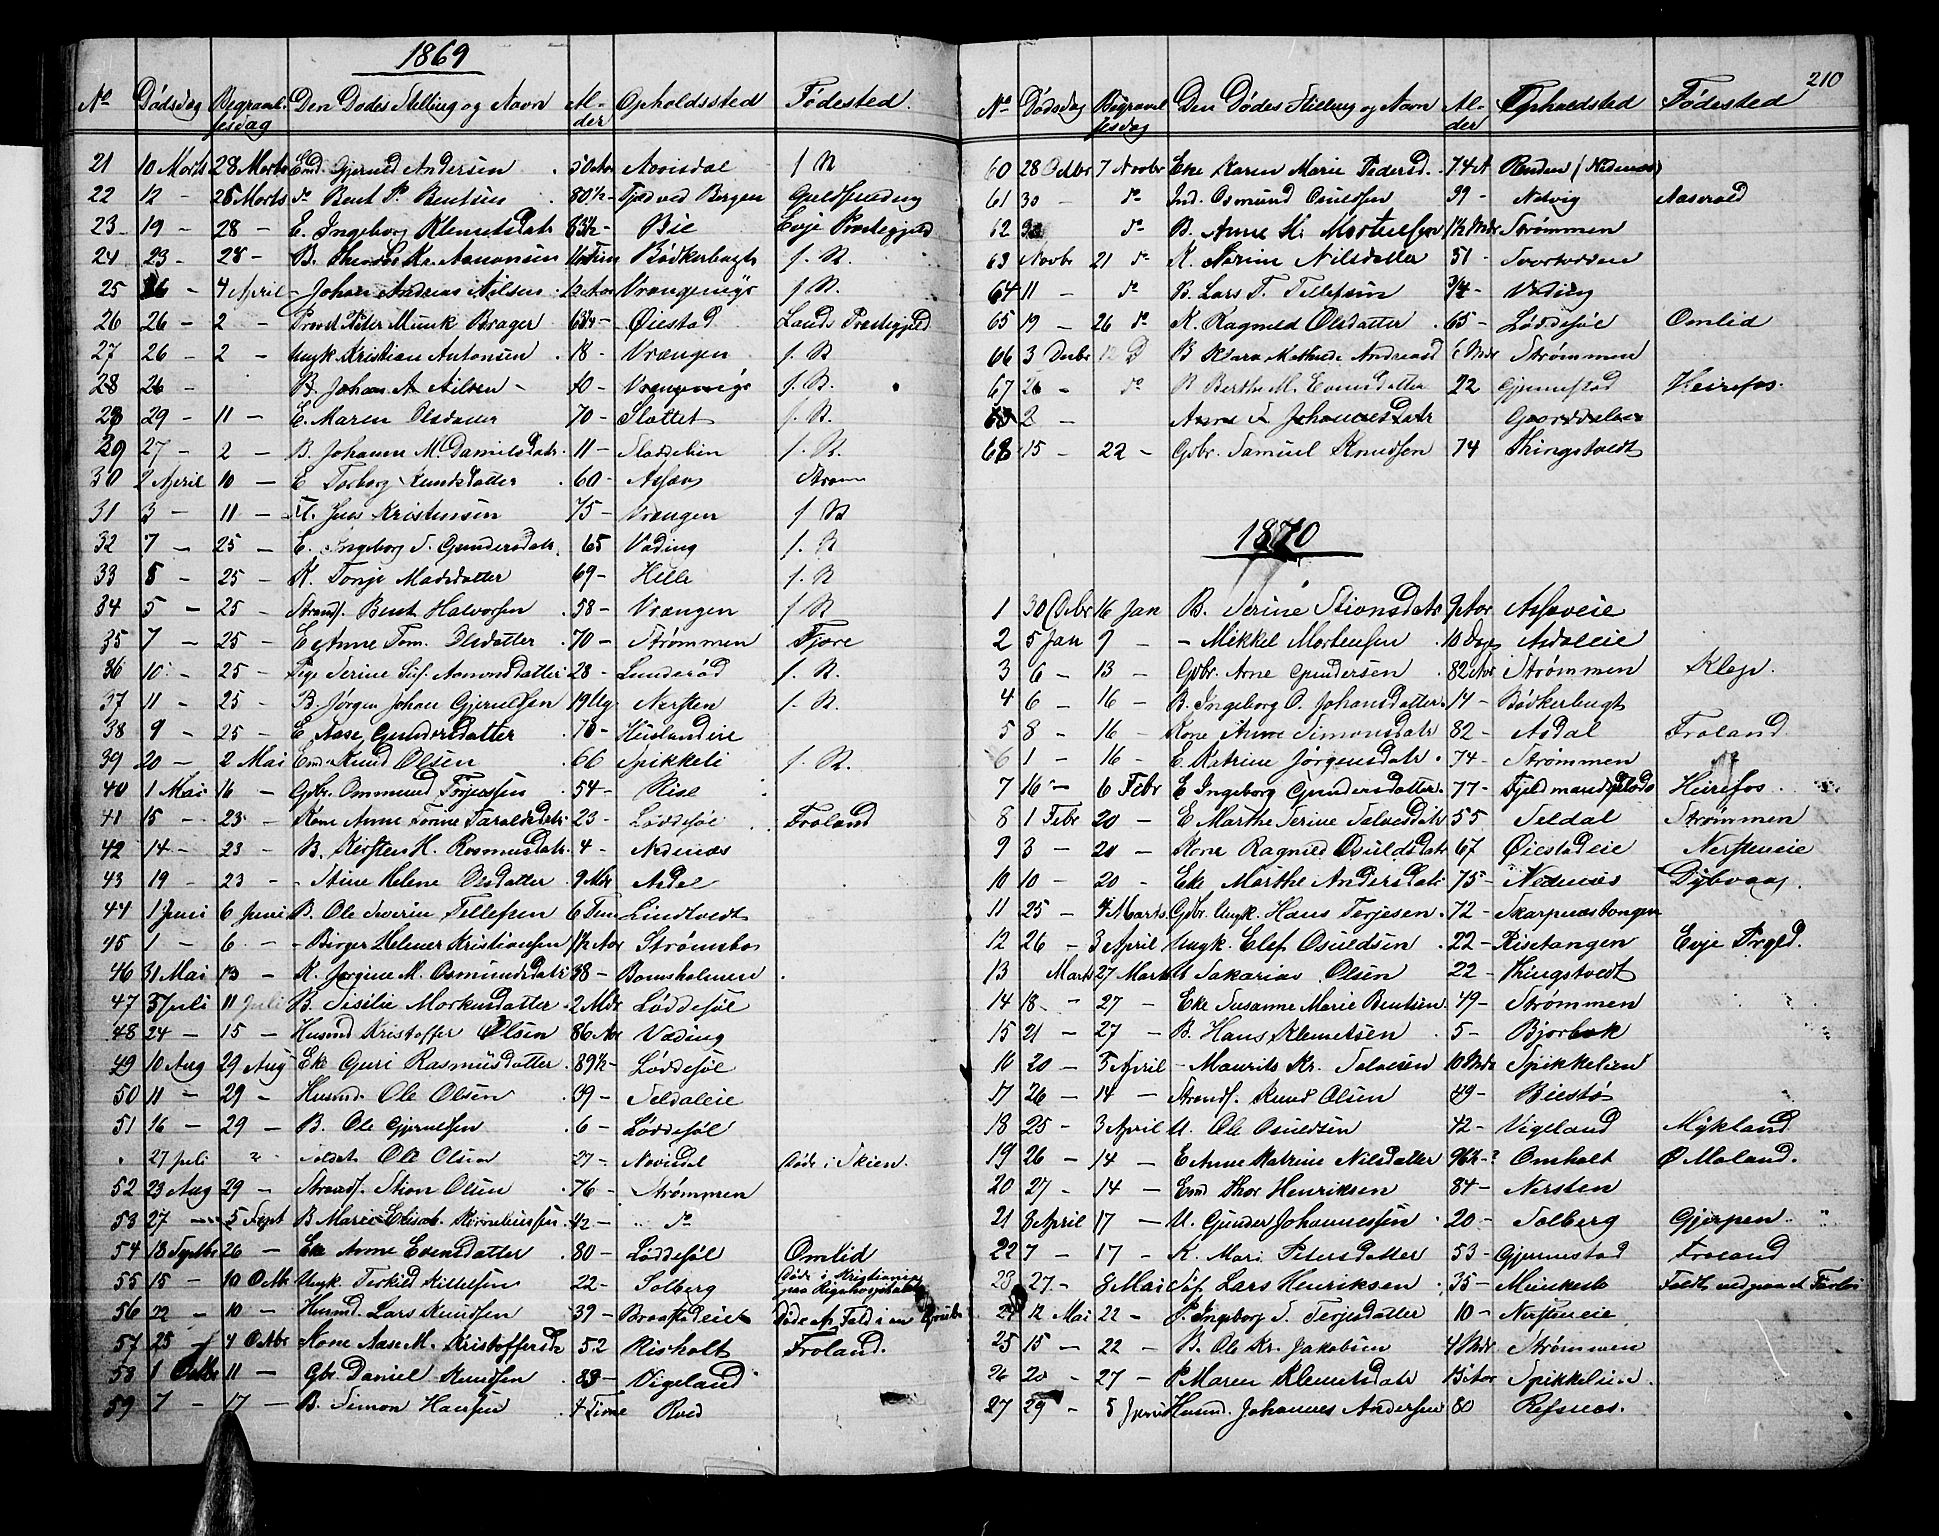 1869
No Dödsdag Begravelsesdag Den Dødes Stilling og Navn Alder Opholdssted Fødested.
21 10 Marts 28 Marts Gjerud Andersen 50 Aar f N
22 12 - 26 Marts Bent P. Bentsen 80½ - Fjød ved Bergen
23 19 - 28 - E. Ingeborg Klemetsdatr Bie Evje Præstegjeld
24 23 - 28 - B. Bödkerbugt f. N.
25 26 - 4 April - Johan Andreas Nilsen f N.
26 26 - 2 - Provst Peter Munk Brager Øiestad Lands Prestegjeld
27 26 - 2 - Ungk Kristian Antonsen 18 - Vrængen f. N
28 26 - B. Johan A Nilsen - f. N.
28 29 - 11 - E. Maren Olsdatter 70 - Slottet f. N
29 27 - 2 - B. Johanne M. Danielsdatr. 11 - f. N.
30 2 April 10 - E Torborg Knudsdatter 60 - Strømm
31 3 - 11 - Jens Kristensen 75 - Vrængen f N
32 7 - 25 - E. Ingeborg S. Gundersdatr. 65 Vading f. N
33 5 - 25 - K. Tonje Madsdatter 69 - Helle f. N
34 5 - 25 - Strandf. Bent Halvorsen 58 - Vrængen f N
35 7 - 25 - E Anne Tom. Olsdatter 70 - Strømmen Fjære
36 10 - 25 - Pige Serine Sof. Aamonsdatter 28 - Lunderød f. N.
37 11 - 25 - B. Jørgen Johan Gjeruldsen 19 Ug. Nersten f. N.
38 9 - 25 - E Aase Gundersdatter 70 - Huslandeie
39 20 - 2 Mai Em Knud Olsen 66 Spikkeli f. N.
40 1 Mai 16 - Gbr. Ommund Torjussen 54 - Rise
41 15 - 23 - Kone Anne Torine Taraldsdatr 23 - Løddesøl Froland
42 14 - 23 - B. Kirsten H. Rasmusdatr. 4 - Nedenæs
43 19 - 23 - - Stine Helene Olsdatter 9 Mdr Asdal
44 1 Juni 6 Juni B. Ole Severin Tellefsen 6 Tim Lindtvedt
45 1 - 6 - - Birger Helmer Kristiansen 1½ Aar Strømsbo
46 31 Mai 13 - K. Jørgine M. Osmundsdatr 38 - Bomsholmen
47 3 Juli 11 Juli B. Sisilie Markusdatter 2 Mdr Løddesøl
48 24 - 15 - Husmd Kristoffer Olsen 86 Aar Vading
49 10 Aug 29 Aug Eke Guri Rasmusdatter 89½ - Løddesøl
50 11 - 29 - Husmd. Ole Olsen 39 - Seldaleie
51 16 - 29 - B. Ole Gjeruldsen 6 - Løddesøl
27 Juli " Soldat Ole Olsen 27 - døde i Skien.
52 23 Aug 29 - Strandf. Stian Olsen 76 - Strømmen
53 27 - 5 Sept B Marie Elisab. Korneliussen 42 - do
54 18 Septbr 26 - Eke Anne Evensdatter 80 - Løddesøl Omlid
55 15 - 10 Octb Ungk. Terkild Kittelsen 22 - Solberg døde i Kristiania paa Rigshospitalet
56 22 - 10 - Husmd. Lars Knudsen 39 - Braastadeiet døde af Fald i en Grube
57 25 - 4 Octbr Kone Aase M. Kristoffersd 52 Risholt Froland.
58 1 Octbr 11 - Gbr. Daniel Knudsen 83 - Vigeland
59 7 - 17 - B. Simon Hansen 4 Time
210
No Dødsdag Begravelsesdag Den Dødes Stilling og Navn Alder Opholdsted Fødested
60 28 Octbr 7 Novbr Eke Karen Marie Pedersd. 74 A (Nedenæs)
61 30 do Ind. Osmund Osuldsen 39 - Natvig Aaserald
62 do B. Anne M. Mortensen 1½ Mdr Strømmen
63 Novbr 21 do K. Karine Nilsdatter 51 - Svartodden
64 11 - do B. Lars T. Tellefsen 3/4 - Vading
65 19 - 26 do K. Ragnild Olsdatter 65 - Løddesøl Omlid
66 3 Decbr 12 D B Klara Mathilde Andreasd 6 Mdr Strømmen
67 26 - do B Berthe M. Evensdatter 22 Gjennestad Heirefos.
2 - Anne S Johannesdatr
68 15 - 22 - Gbr. Samuel Knudsen 74 Thingstvedt
1870
1 30 Decbr 16 Jan B. Serine Stiansdatr 9 Aar Assaveie
2 5 Jan 9 - - Mikkel Mortensen 10 Dage Asdaleie
3 6 - 13 - Gbr. Arne Gundersen 82 Aar Strømmen Klep.
4 6 - 16 - B. Ingeborg O. Johansdatter 14 - Bödkerbugt
5 8 - 16 - Kone Anne Simonsdatr 82 - Asdal Froland
6 1 - 16 - E. Katrine Jørgensdatr. 74 - Strømmen
7 16 - 6 Febr E Ingeborg Gundersdatter 77 - Heirefos.
8 1 Febr 20 - E Marthe Serine Salvesdatr 55 Seldal Strømmen
9 3 - 20 - Kone Ragnild Osuldsdatr 67 Øiestadeie Nersteneie
10 10 - 20 - Eke Marthe Andersdatr 75 - Nedenæs Dybvaag.
11 25 - 4 Marts Gbr. Ungk. Hans Terjesen 72 - Skarpnæstangen
12 26 - 3 April Ungk. Elef Osuldsen 22 - Risetangen Evje Prgld.
13 Marts 27 Marts U Sakarias Olsen 22 - Thingstvedt
14 18 - 27 - Eke Susanne Marie Bentsen 49 - Strømmen
15 21 - 27 - B. Hans Klemetsen 5 - Bjorbæk
16 20 - 3 April - Maurits Kr. Salvesen 10 Mdr Spikkelien
17 26 - 14 - Strandf. Knud Olsen 49 - Biestø
18 25 - 3 April U. Ole Osuldsen 42 - Vigeland Mykland
19 26 - 14 - E Anne Katrine Nilsdatter Omholt Ø Moland.
20 27 - 14 - Em Thor Henriksen 84 - Nersten
21 8 April 17 - U. Gunder Johannessen 20 - Solberg Gjerpen
22 7 - 17 - K. Mari Petersdatter 53 - Gjennestad Froland
23 27 - 8 Mai Søf Lars Henriksen 35 - Faldt ned paa et Fartøi
24 12 Mai 22 - P. Ingeborg S. Terjesdatter 10 - Nersteneie
25 15 - 22 - B. Ole Kr. Jakobsen 4 Mdr Strømmen
26 20 - 27 - P Maren Klemetsdatr 13 Aar Spikkelien.
27 29 - 5 Juni Husmd. Johannes Andersen 80 Refsnæs.